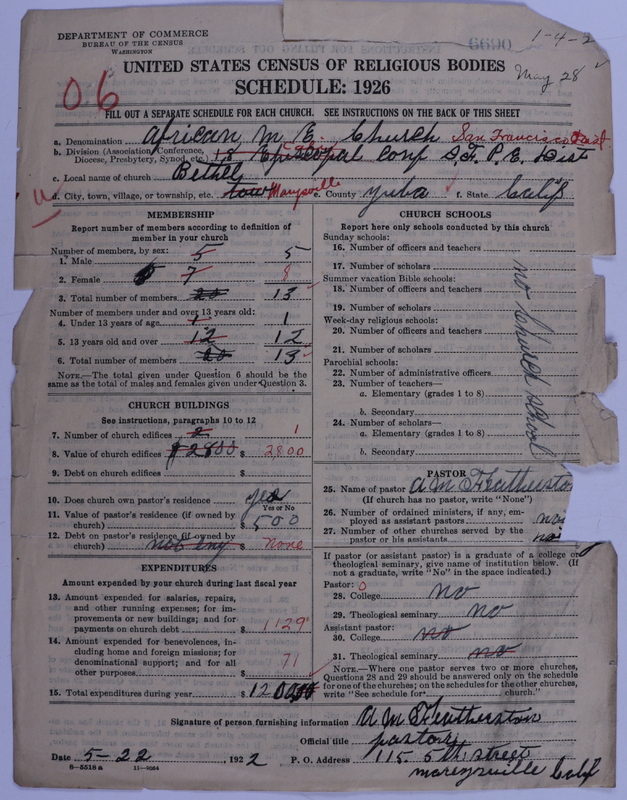 DEPARTMENT OF COMMERCE
BUREAU OF THE CENSUS
WASHINGTON
1-4-2
May 28
UNITED STATES CENSUS OF RELIGIOUS BODIES
SCHEDULE: 1926
06
FILL OUT A SEPARATE SCHEDULE FOR EACH CHURCH. SEE INSTRUCTIONS ON THE BACK OF THIS SHEET
a. Denomination African M. E. Church San Francisco
b. Division (Association, Conference, Diocese, Presbytery, Synod, etc.) Episcopal Conf S. F. P. E. Dist
c. Local name of church Bethel
d. City, town, village, or township, etc. town Marysville e. County Yuba f. State Calif
MEMBERSHIP
Report number of members according to definition of
member in your church
Number of members, by sex:
1. Male 5 5
2. Female 7 8
3. Total number of members 20 13
Number of members under and over 13 years old:
4. Under 13 years of age 1 1
5. 13 years old and over 12 12
6. Total number of members 20 13
NOTE.—The total given under Question 6 should be
same as the total of males and females given under Question 3.
CHURCH BUILDINGS
See instructions, paragraphs 10 to 12
7. Number of church edifices 2 1
8. Value of church edifices $2800 $ 2800
9. Debt on church edifices $
10. Does church own pastor's residence yes
Yes or No
11. Value of pastor's residence (if owned by
church) $ 500
12. Debt on pastor's residence (if owned by
church) not any $ none
EXPENDITURES
Amount expended by your church during last fiscal year
13. Amount expended for salaries, repairs,
and other running expenses; for im-
provements or new buildings; and for
payments on church debt $ 1129
14. Amount expended for benevolences, in-
cluding home and foreign missions; for
denominational support; and for all
other purposes $ 71
15. Total expenditures during year $ 1200
CHURCH SCHOOLS
Report here only schools conducted by this church
Sunday schools:
16. Number of officers and teachers
17. Number of scholars
Summer vacation Bible schools:
18. Number of officers and teachers
19. Number of scholars
Week-day religious schools:
20. Number of officers and teachers
21. Number of scholars
Parochial schools:
22. Number of administrative officers
23. Number of teachers—
a. Elementary (grades 1 to 8)
b. Secondary
24. Number of scholars—
a. Elementary (grades 1 to 8)
b. Secondary
no church school
PASTOR
25. Name of pastor A M Featherston
(If church has no pastor, write "None")
26. Number of ordained ministers, if any, em-
ployed as assistant pastors no
27. Number of other churches served by the
pastor or his assistants no
If pastor (or assistant pastor) is a graduate of a college or
theological seminary, give name of institution below. (If
not a graduate, write "No" in the space indicated.)
Pastor: 0
28. College no
29. Theological seminary no
Assistant pastor:
30. College no
31. Theological seminary no
NOTE.—Where one pastor serves two or more churches,
Questions 28 and 29 should be answered only on the schedule
for one of the churches; on the schedules for the other churches,
write "See schedule for church."
Signature of person furnishing information A M Featherston
Official title pastor
Date 5-22, 1922 P. O. Address 115. 5th street
mareysville Calif
8-5518 a